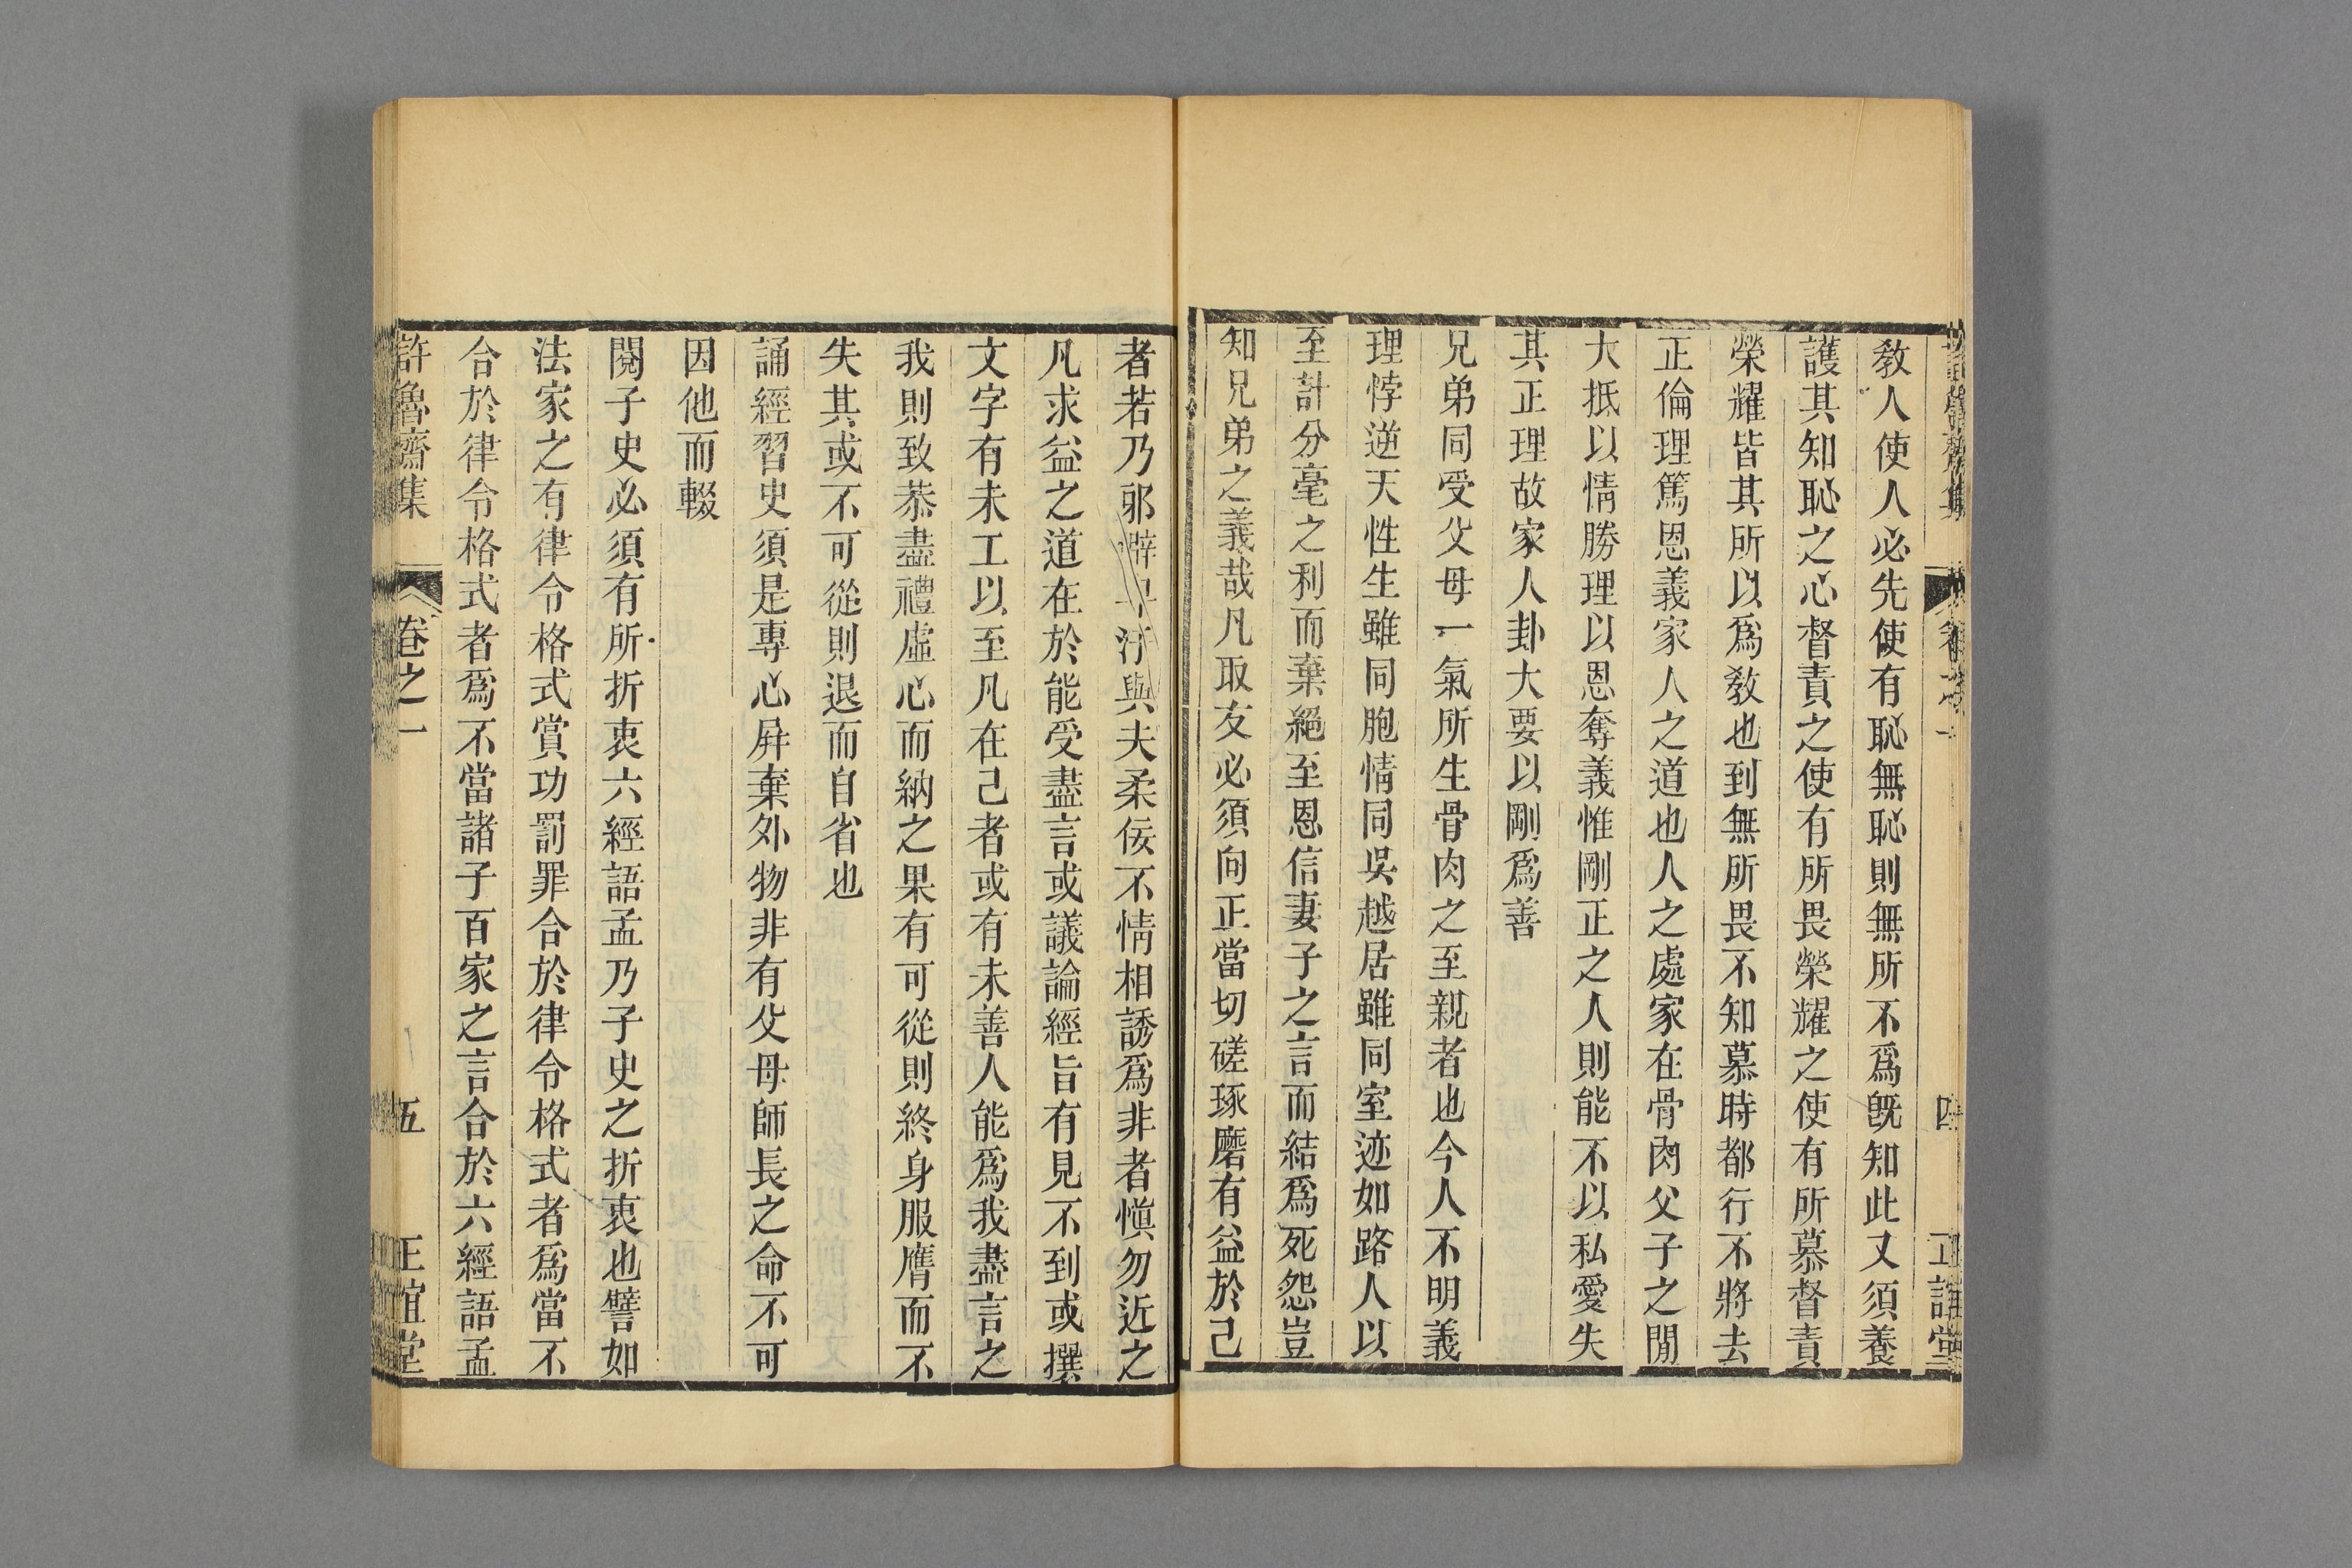 教人使人必先使有恥無恥則無所不爲旣知此又須養
護其知恥之心督責之使有所畏榮耀之使有所慕督責
榮耀皆其所以爲教也到無所畏不知慕時都行不將去
正倫理篤恩義家人之道也人之處家在骨肉父子之閒
大抵以情勝理以恩奪義惟剛正之人則能不以私愛失
其正理故家人卦大要以剛爲善
兄弟同受父母一氣所生骨肉之至親者也今人不明義
理悖逆天性生雖同胞情同吳越居雖同室迹如路人以
至計分毫之利而棄絕至恩信妻子之言而結爲死怨豈
知兄弟之義哉凡取友必須向正當切磋琢磨有益於己
四
正誼堂
者若乃邪僻卑汙與夫柔佞不情相誘爲非者愼勿近之
凡求益之道在於能受盡言或議論經旨有見不到或撰
文字有未工以至凡在己者或有未善人能爲我盡言之
我則致恭盡禮虛心而納之果有可從則終身服膺而不
失其或不可從則退而自省也
誦經習史須是專心屛棄外物非有父母師長之命不可
因他而輟
閱子史必須有所折衷六經語孟乃子史之折衷也譬如
法家之有律令格式賞功罰罪合於律令格式者爲當不
合於律令格式者爲不當諸子百家之言合於六經語孟
許魯齋集
卷之一
五
正誼堂